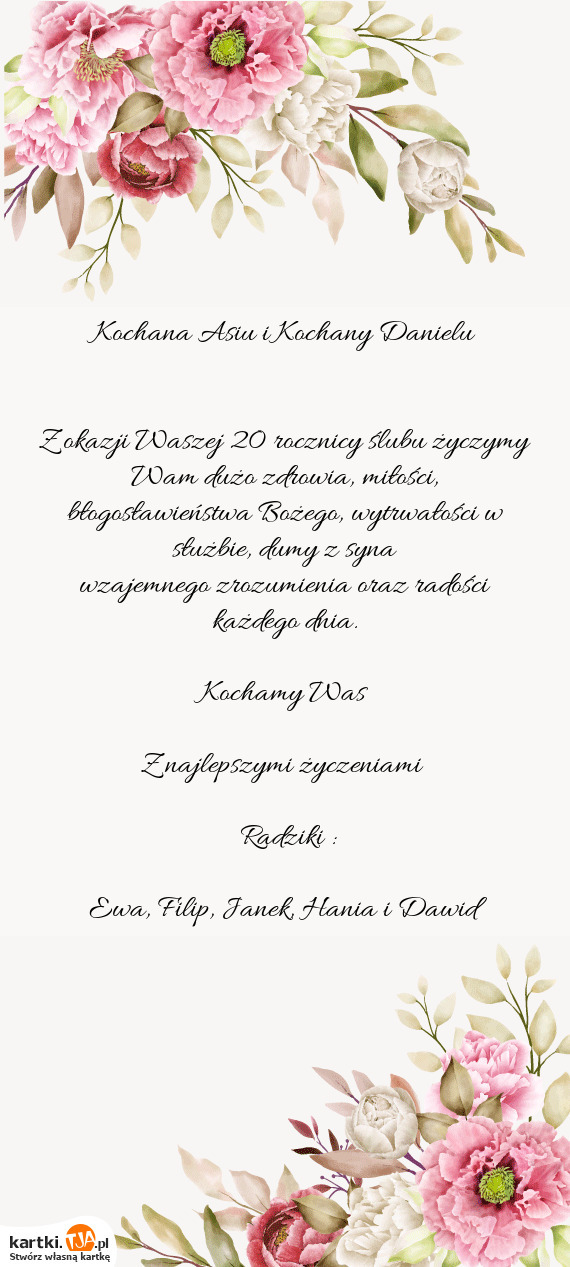 Kochana Asiu i Kochany Danielu
Z okazji Waszej 20 rocznicy ślubu życzymy
Wam dużo zdrowia, miłości,
błogosławieństwa Bożego, wytrwałości w
służbie, dumy z syna
wzajemnego zrozumienia oraz radości
każdego dnia.
Kochamy Was
Z najlepszymi życzeniami
Radziki :
Ewa, Filip, Janek, Hania i Dawid
kartki.TJA.pl
Stwórz własną kartkę